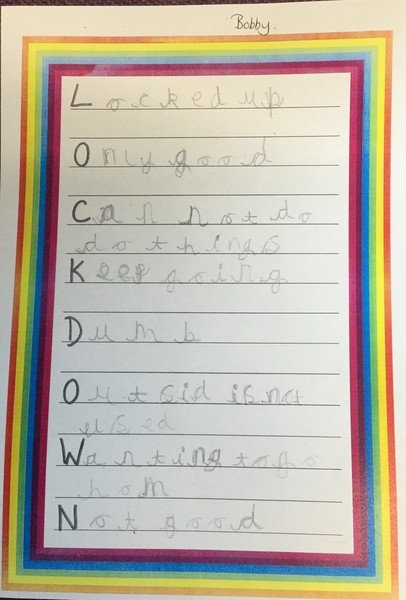 Bobby.
Locked up
Only good
Can not do
do things
Keep going
Dumb
Outsid is not
used
Wanting to go
hom
Not good